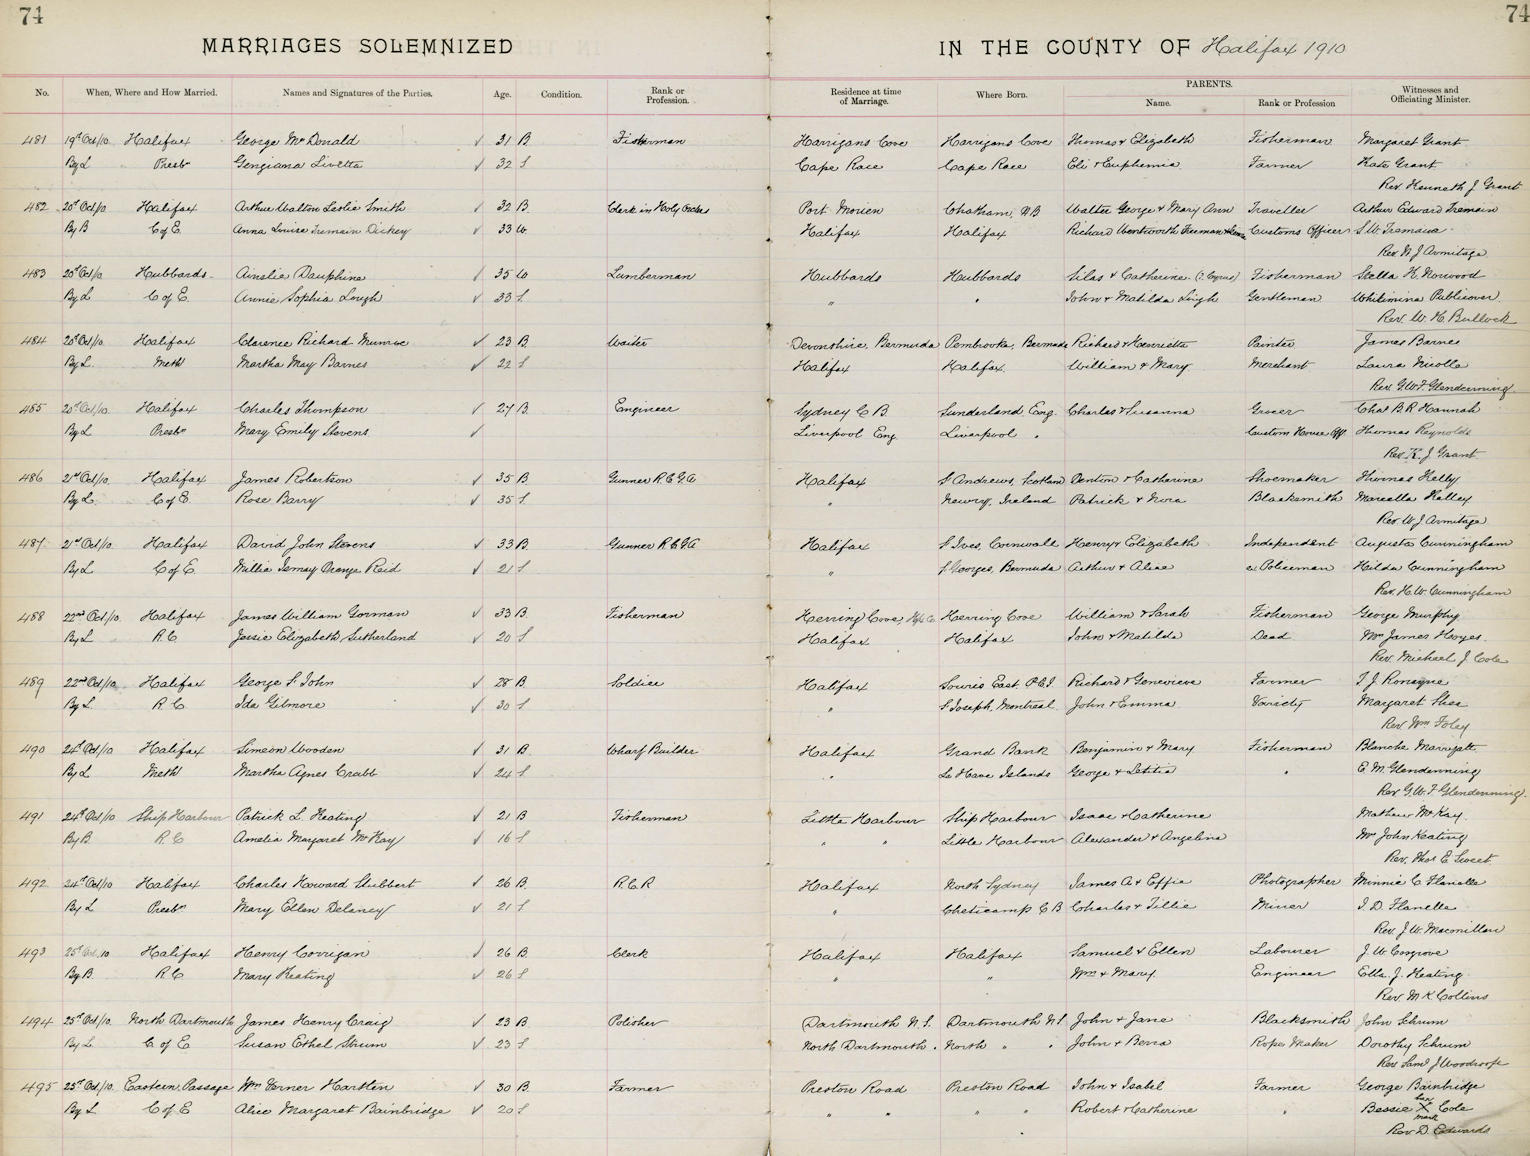 74
74
MARRIAGES SOLEMNIZED IN THE COUNTY OF Halifax 1910
No. When, Where and How Married. Names and Signatures of the Parties. Age. Condition. Rank or Profession. Residence at time of Marriage. Where Born. PARENTS. Name. Rank or Profession Witnesses and Officiating Minister.
481 19th Oct/10 Halifax George McDonald ✓ 31 B Fisherman Harrigans Cove Harrigans Cove Thomas & Elizabeth Fisherman Margaret Grant
By L Presbn Gengiana Livetta ✓ 32 S Cape Race Cape Race Eli & Euphemia Farmer Kate Grant
Rev. Kenneth J Grant
482 20th Oct/10 Halifax Arthur Walton Leslie Smith ✓ 32 B Clerk in Holy Orders Port Morien Chatham, N.B Walter George & Mary Ann Traveller Arthur Edward Tremain
By B C of E. Anna Louisa Tremain Dickey ✓ 33 W. Halifax Halifax Richard Wentworth Customs Officer S.W. Tremain
Rev. W. J Armitage
483 20th Oct/10 Hubbards Amelia Dauphine ✓ 35 W Lumberman Hubbards Hubbards Silas & Catherine Fisherman Stella H. Norwood
By L C of E. Annie Sophia Lough ✓ 33 S " " John & Matilda Gentleman Whilimina Publicover
Rev. W. H. Bullock
484 20th Oct/10 Halifax Clarence Richard Munroe ✓ 23 B Waiter Devonshire, Bermuda Pembrooke, Bermuda Richard & Henrietta Printer James Barnes
By L. Meth Martha May Barnes ✓ 22 S Halifax Halifax. William & Mary Merchant Laura Nicolle
Rev. G.W.F. Glendenning.
485 20th Oct/10 Halifax Charles Thompson ✓ 27 B. Engineer Sydney C B. Sunderland Eng. Charles & Susanna Grocer Chas B. R Hannah
By L Presbn Mary Emily Stevens ✓ Liverpool Eng. Liverpool " Custom House Off Thomas Reynolds
Rev. K. J Grant
486 21st Oct/10. Halifax James Robertson ✓ 35 B Gunner R.C.G.A Halifax St Andrews, Scotland Denton & Catharine Shoemaker Thomas Kelly
By L. C of E. Rose Barry ✓ 35 S " Newry, Ireland Patrick & Nora Blacksmith Marcella Kelley
Rev. W. J Armitage
487. 21st Oct/10. Halifax David John Stevens ✓ 33 B. Gunner R.C.G.A Halifax St Ives, Cornwall Henry & Elizabeth Independent Augusta Cunningham
By L C of E. Millia Ismay Orange Reid ✓ 21 S " St Georges, Bermuda Arthur & Alice ex Policeman Hilda Cunningham
Rev. H. W. Cunningham
488 22nd Oct/10. Halifax James William Gorman ✓ 33 B. Fisherman Herring Cove, Hfx Co. Herring Cove William & Sarah Fisherman George Murphy
By L R.C Jessie Elizabeth Sutherland ✓ 20 S Halifax Halifax John & Matilda Dead Mrs James Hayes.
Rev. Michael J Cole
489 22nd Oct/10. Halifax George St John ✓ 28 B. Soldier Halifax Souris East. P.E.I. Richard & Genevieve Farmer T. J Ronayne
By L. R. C Ida Gilmore ✓ 30 S " St Joseph, Montreal John & Emma Variety Margaret Shea
Rev. Wm Foley
490 24th Oct/10 Halifax Simeon Wooden ✓ 31 B. Wharf Builder Halifax Grand Bank Benjamin & Mary Fisherman Blanche
By L Meth Martha Agnes Crabb ✓ 24 S " La Have Islands George & Letitia " E. M. Glendenning
Rev G.W.F Glendenning.
491 24th Oct/10 Ship Harbour Patrick L Keating ✓ 21 B Fisherman Little Harbour Ship Harbour Isaac & Catherine Mathew McKay.
By B. R. C Amelia Margaret McKay ✓ 16 S " " Little Harbour Alexander & Angelina Mrs John Keating
Rev. Thos E Sweet
492 24th Oct/10 Halifax Charles Howard Stubbert ✓ 26 B. R.C.R Halifax North Sydney James A & Effie Photographer Minnie C Flanelle
By L Presbn Mary Ellen Delaney ✓ 21 S " Cheticamp C B Charles & Tillie Miner I. D. Flanelle
Rev. J. W. Macmillan
493 25th Oct/10 Halifax Henry Corrigan ✓ 26 B. Clerk Halifax Halifax Samuel & Ellen Labourer J. W. Cosgrove
By B. R.C Mary Keating ✓ 26 S " " Wm & Mary Engineer Ella. J. Keating.
Rev. M. K Collins
494 25th Oct/10. North Dartmouth James Henry Craig ✓ 23 B. Polisher Dartmouth N.S. Dartmouth N.S John & Jane Blacksmith John Schrum
By L C of E Susan Ethel Shrum ✓ 23 S North Dartmouth. North " " John & Rope Maker Dorothy Schrum
Rev. Saml J Woodroofe
495 25th Oct/10. Eastern Passage Wm Verner Hartlen ✓ 30 B. Farmer Preston Road Preston Road John & Isabel Farmer George Bainbridge
By L C of E Alice Margaret Bainbridge ✓ 20 S " " " " Robert & Catherine " Bessie her X mark Cole
Rev. D. Edwards